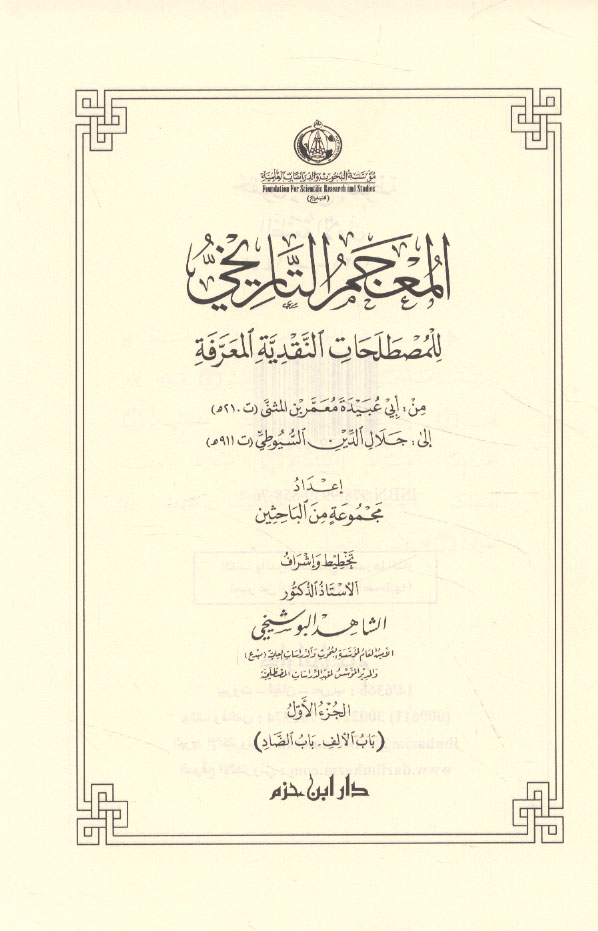 مؤسسة البحوث والدراسات العلمية
Foundation For Scientific Research and Studies
(مبدع)
المُعْجَمُ التَّارِيخِيُّ
لِلْمُصْطَلَحَاتِ النَّقْدِيَّةِ المُعَرَّفَةِ
مِنْ: أَبِي عُبَيْدَةَ مَعْمَرِ بنِ المثنَّى (ت ٢١٠هـ)
إلى: جَلَالِ الدِّينِ السُّيُوطِيِّ (ت ٩١١هـ)
إعْدَادُ
مَجْمُوعَةٍ مِنَ البَاحِثِين
تَخْطِيط وَإِشْرَافُ
الأُسْتَاذُ الدُّكْتُور
الشاهد البوشيخي
الأمين العام لمؤسسة البحوث والدراسات العلمية (مبدع)
والمدير المؤسس لمعهد الدراسات المصطلحية
الجُزْءُ الأَوَّلُ
(بَابُ الأَلِفِ - بَابُ الضَّادِ)
دار ابن حزم